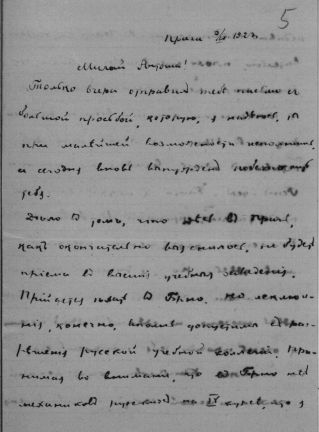 5
Прага 1923
Милый Антоша!
Только вчера отправил тебе письмо с
большой просьбой, которую, я надеюсь, ты
при малейшей возможности исполнишь,
и сегодня вновь вынужден
тебя.
Дело в том, что в Праге,
какъ окончательно выяснилось, не будетъ
приема в высшия учебныя заведенія.
Прійдется ехать в Брно. Но исключе-
нія, конечно, вполне допустимы с раз-
решения русской учебной коллегіи. При-
нимая во внимание, что в Брно нет
механиков русских на IV курсе, что я